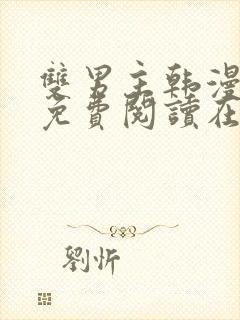 雙男主韩漫
免費閱讀在
劉忻